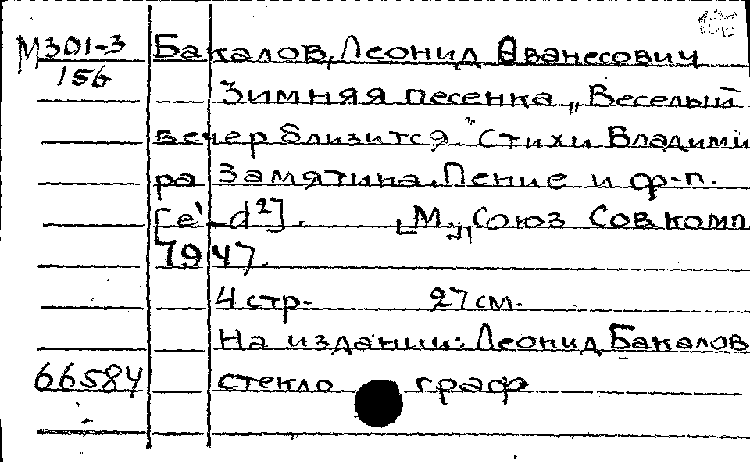 М301-3 Бакалов, Леонид Аванесович
156
Зимняя песенка „Веселый
вечер близится." Стихи Владими
ра Замятина. Пение и ф-п.
[e¹-d²]. [М.], Союз сов комп
1947.
4 стр. 27 см.
На издании: Леонид Бакалов
66584 стекло граф